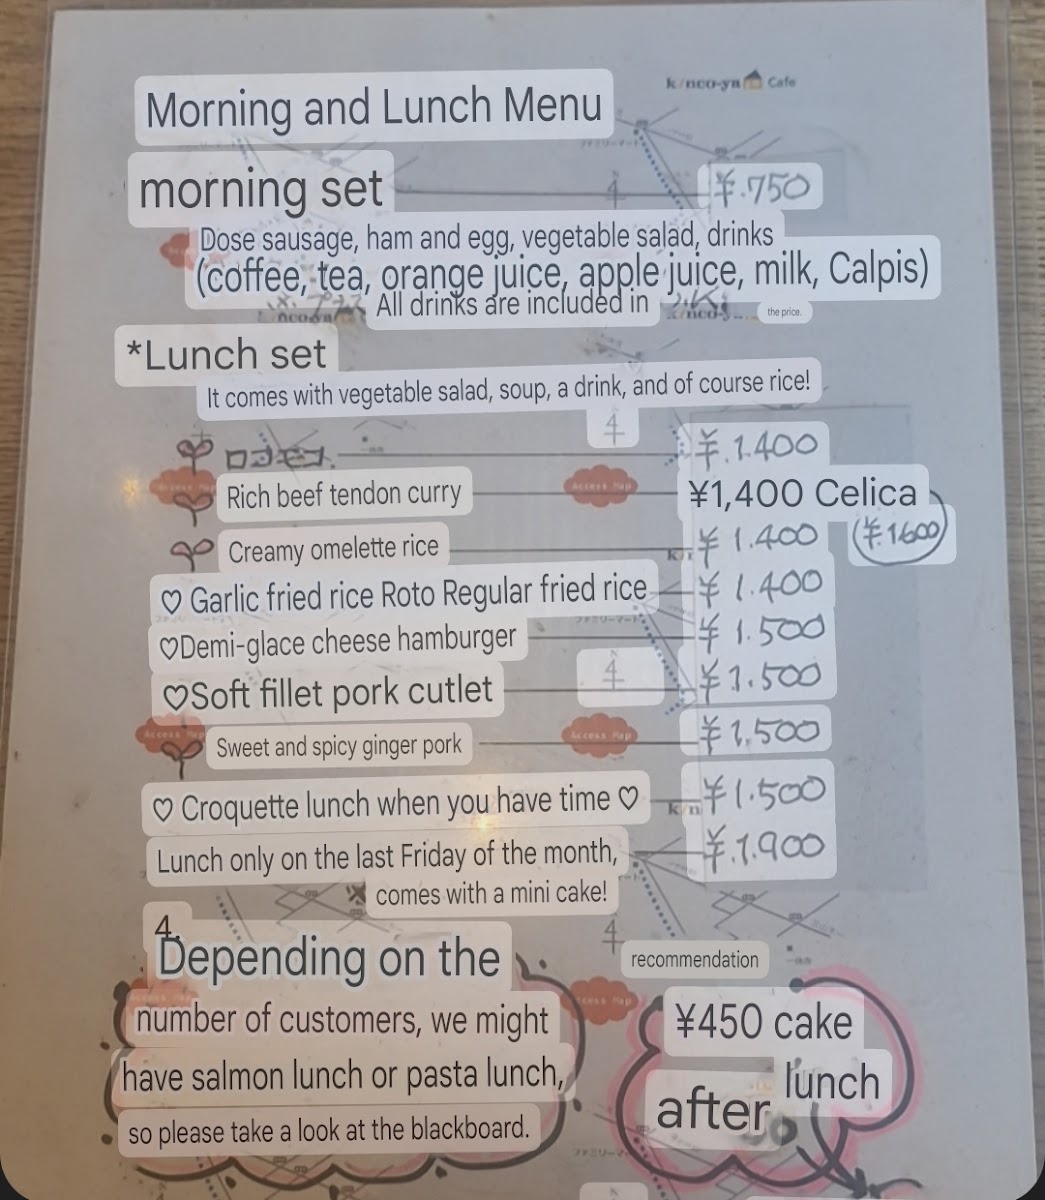 k/nco-ya Cafe
Morning and Lunch Menu
morning set ¥.750
Dose sausage, ham and egg, vegetable salad, drinks
(coffee, tea, orange juice, apple juice, milk, Calpis)
All drinks are included in the price.
*Lunch set
It comes with vegetable salad, soup, a drink, and of course rice!
ロコモコ. ¥.1.400
Rich beef tendon curry ¥1,400 Celica
Creamy omelette rice ¥1.400 (¥.1600)
♡ Garlic fried rice Roto Regular fried rice ¥1.400
♡Demi-glace cheese hamburger ¥1.500
♡Soft fillet pork cutlet ¥1.500
Sweet and spicy ginger pork ¥1,500
♡ Croquette lunch when you have time ♡ ¥1.500
Lunch only on the last Friday of the month, ¥.1.900
※ comes with a mini cake!
4.
Depending on the
number of customers, we might
have salmon lunch or pasta lunch,
so please take a look at the blackboard.
recommendation
¥450 cake
after lunch
Access Map
Access Map
Access Map
Access Map
Access Map